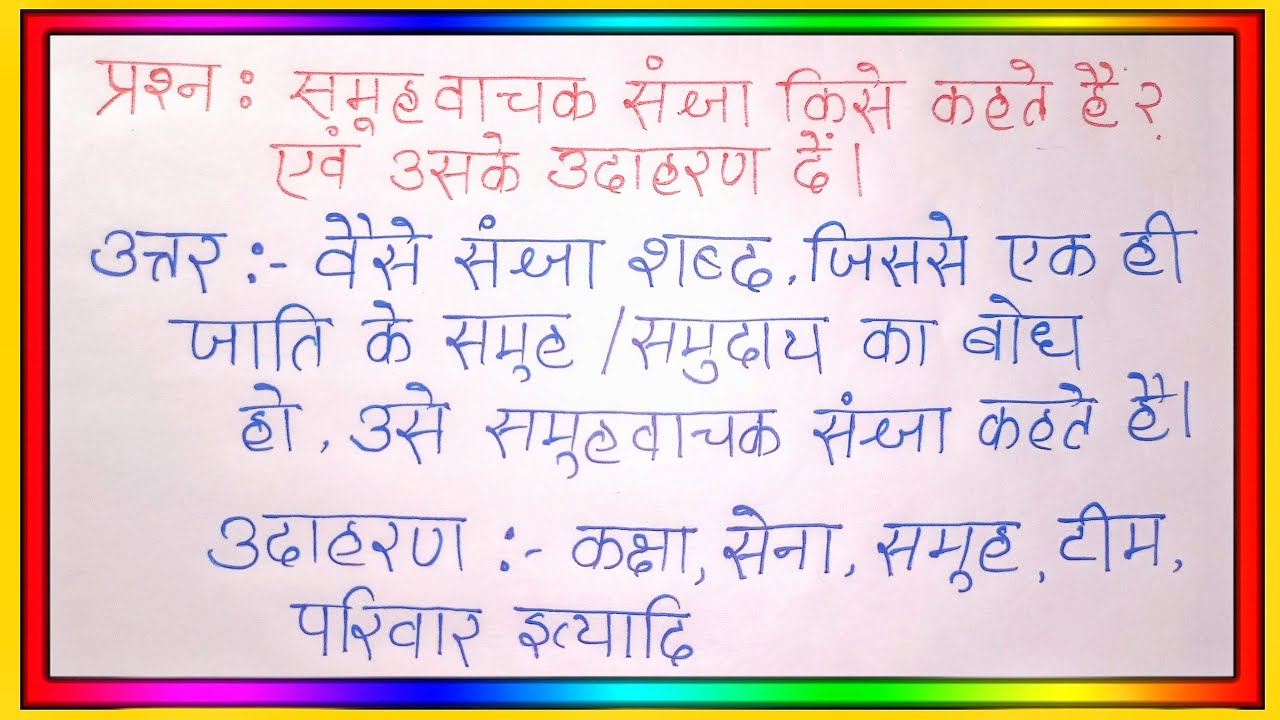 प्रश्न : समूहवाचक संज्ञा किसे कहते हैं ?
एवं उसके उदाहरण दें।
उत्तर :- वैसे संज्ञा शब्द, जिससे एक ही
जाति के समुह / समुदाय का बोध
हो, उसे समुहवाचक संज्ञा कहते है।
उदाहरण :- कक्षा, सेना, समुह, टीम,
परिवार इत्यादि